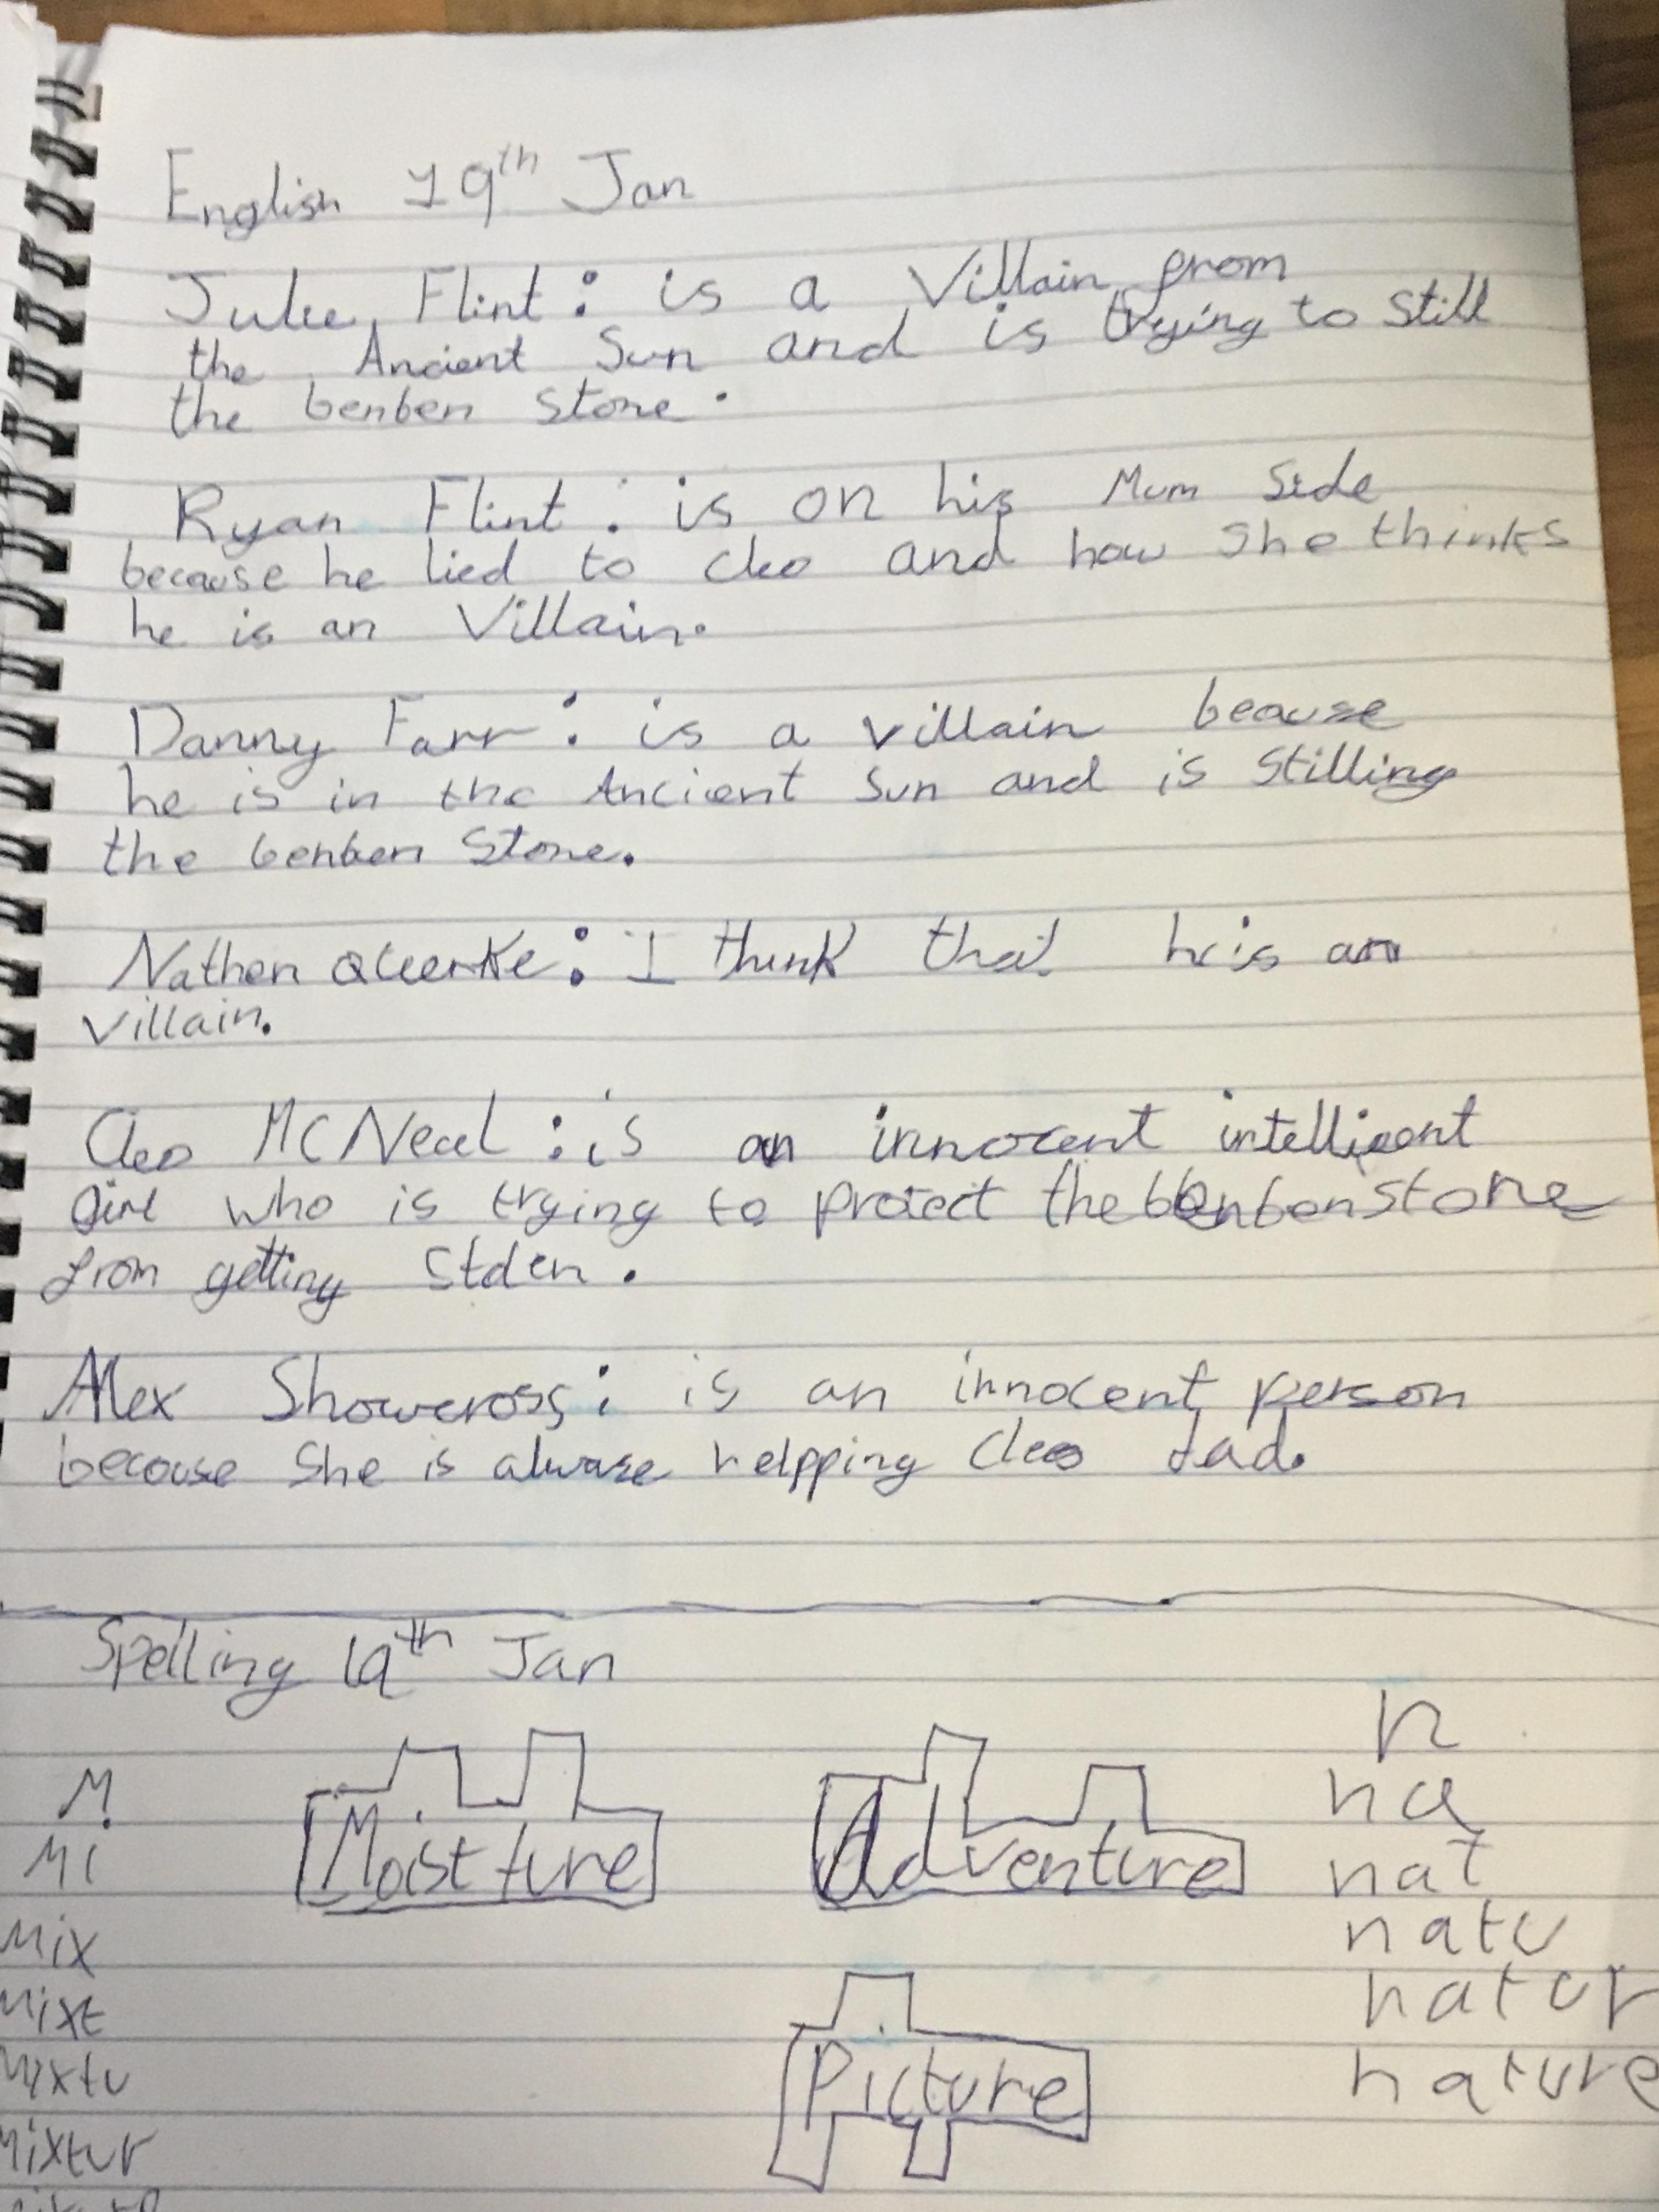 English 19th Jan
Julie Flint: is a Villain from
the Ancient Sun and is trying to Still
the benben Stone.
Ryan Flint: is on his Mum Side
because he lied to Cleo and how She thinks
he is an Villain.
Danny Farr: is a villain beause
he is in the Ancient Sun and is Stilling
the benben Stone.
Nathen I think that he is an
villain.
Cleo McNeal: is an innocent intelligent
girl who is trying to protect the benben stone
from getting Stolen.
Alex Showcross: is an innocent person
because She is alwase helpping Cleos dad.
Spelling 19th Jan
M
Mi
Mix
Mixt
Mixtu
Mixtur
Moistture
Adventure
Picture
n
na
nat
natu
natur
nature